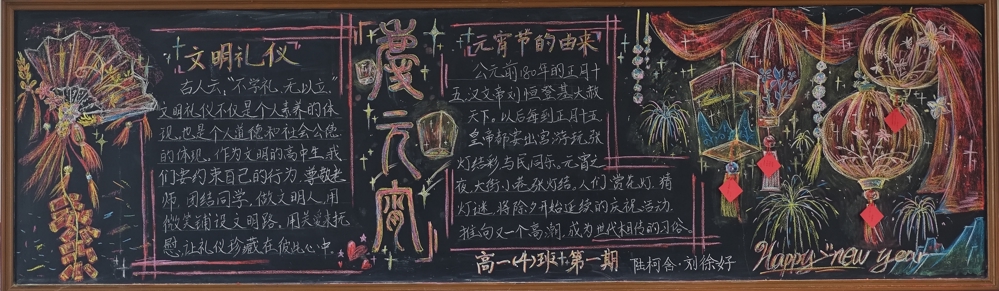 文明礼仪
古人云，"不学礼，无以立。"
文明礼仪不仅是个人素养的体
现，也是个人道德和社会公德
的体现。作为文明的高中生，我
们要约束自己的行为，尊敬老
师，团结同学，做文明人。用
微笑铺设文明路，用关爱来抚
慰，让礼仪珍藏在彼此心中。
元宵
元宵节的由来
公元前180年的正月十
五，汉文帝刘恒登基大赦
天下。以后每到正月十五
皇帝都要出宫游玩，张
灯结彩与民同乐。元宵之
夜，大街小巷张灯结，人们赏花灯，猜
灯谜，将除夕开始延续的庆祝活动
推向又一个高潮，成为世代相传的习俗。
高一(4)班 第一期
陆柯含·刘徐好
Happy new year